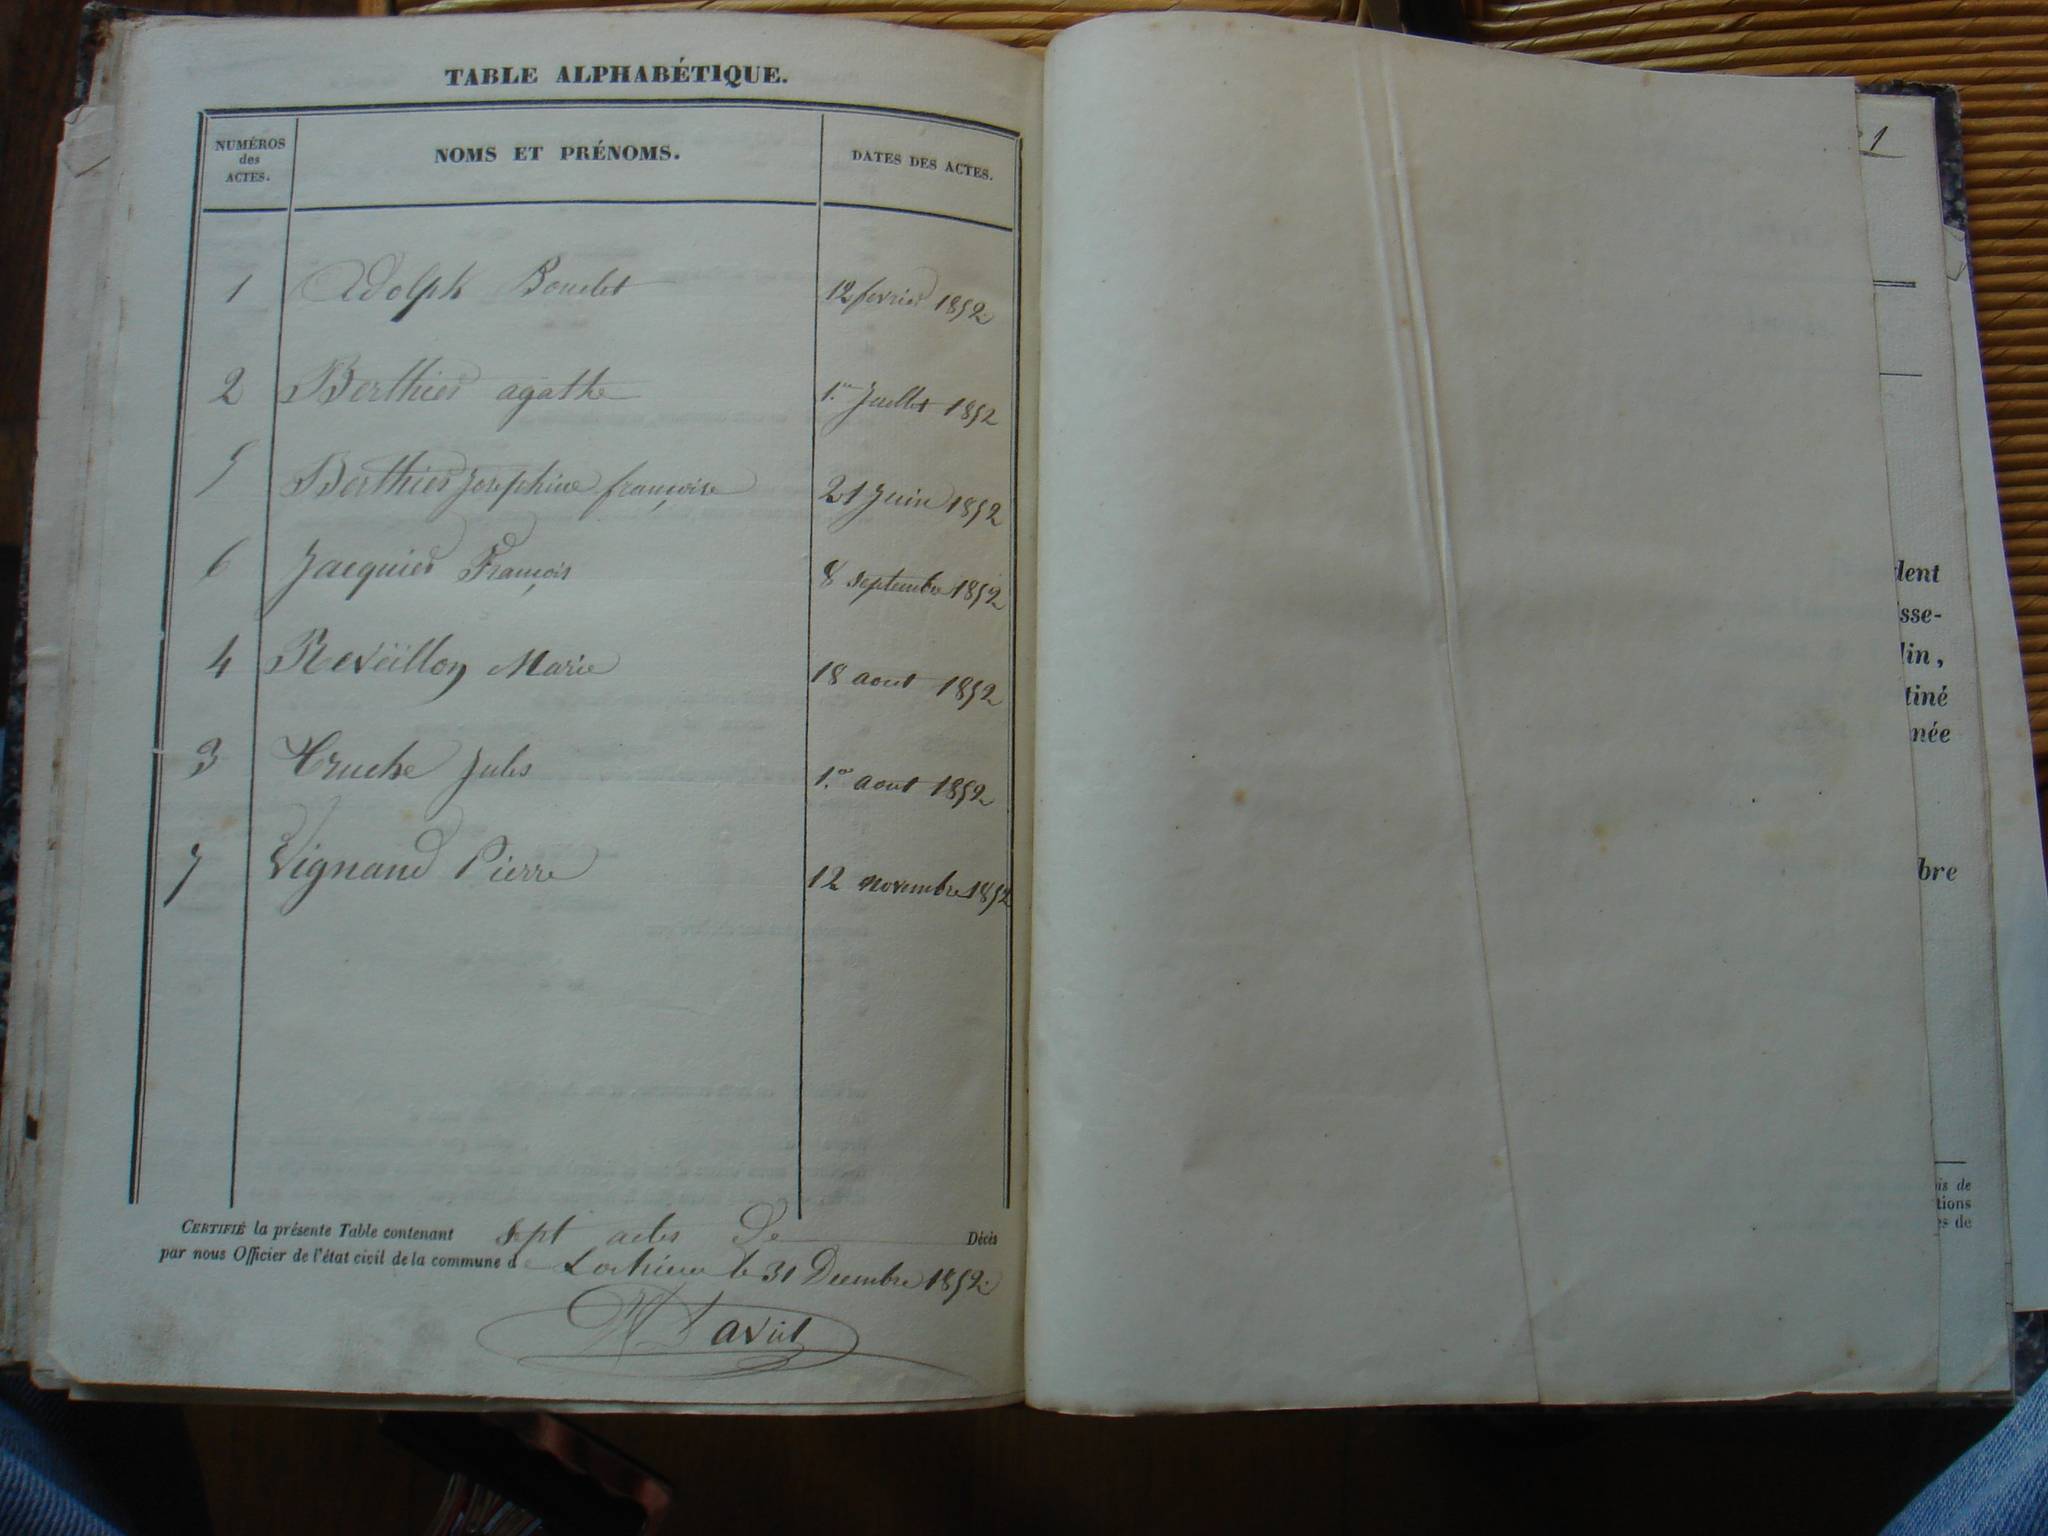 TABLE ALPHABÉTIQUE.
NUMÉROS des ACTES.
NOMS ET PRÉNOMS.
DATES DES ACTES.
1 Adolph Boudet 12 fevrier 1852
2 Berthier agathe 1.er Juillet 1852
5 Berthier Josephine françoise 21 Juin 1852
6 Jacquier François 8 septembre 1852
4 Reveïllon Marie 18 aout 1852
3 Truche Jules 1.er aout 1852
7 Vignand Pierre 12 novembre 1852
CERTIFIÉ la présente Table contenant sept actes De Décès
par nous Officier de l'état civil de la commune de Lochieu le 31 Decembre 1852
1
dent
sse-
lin,
tiné
née
bre
is de
tions
s de